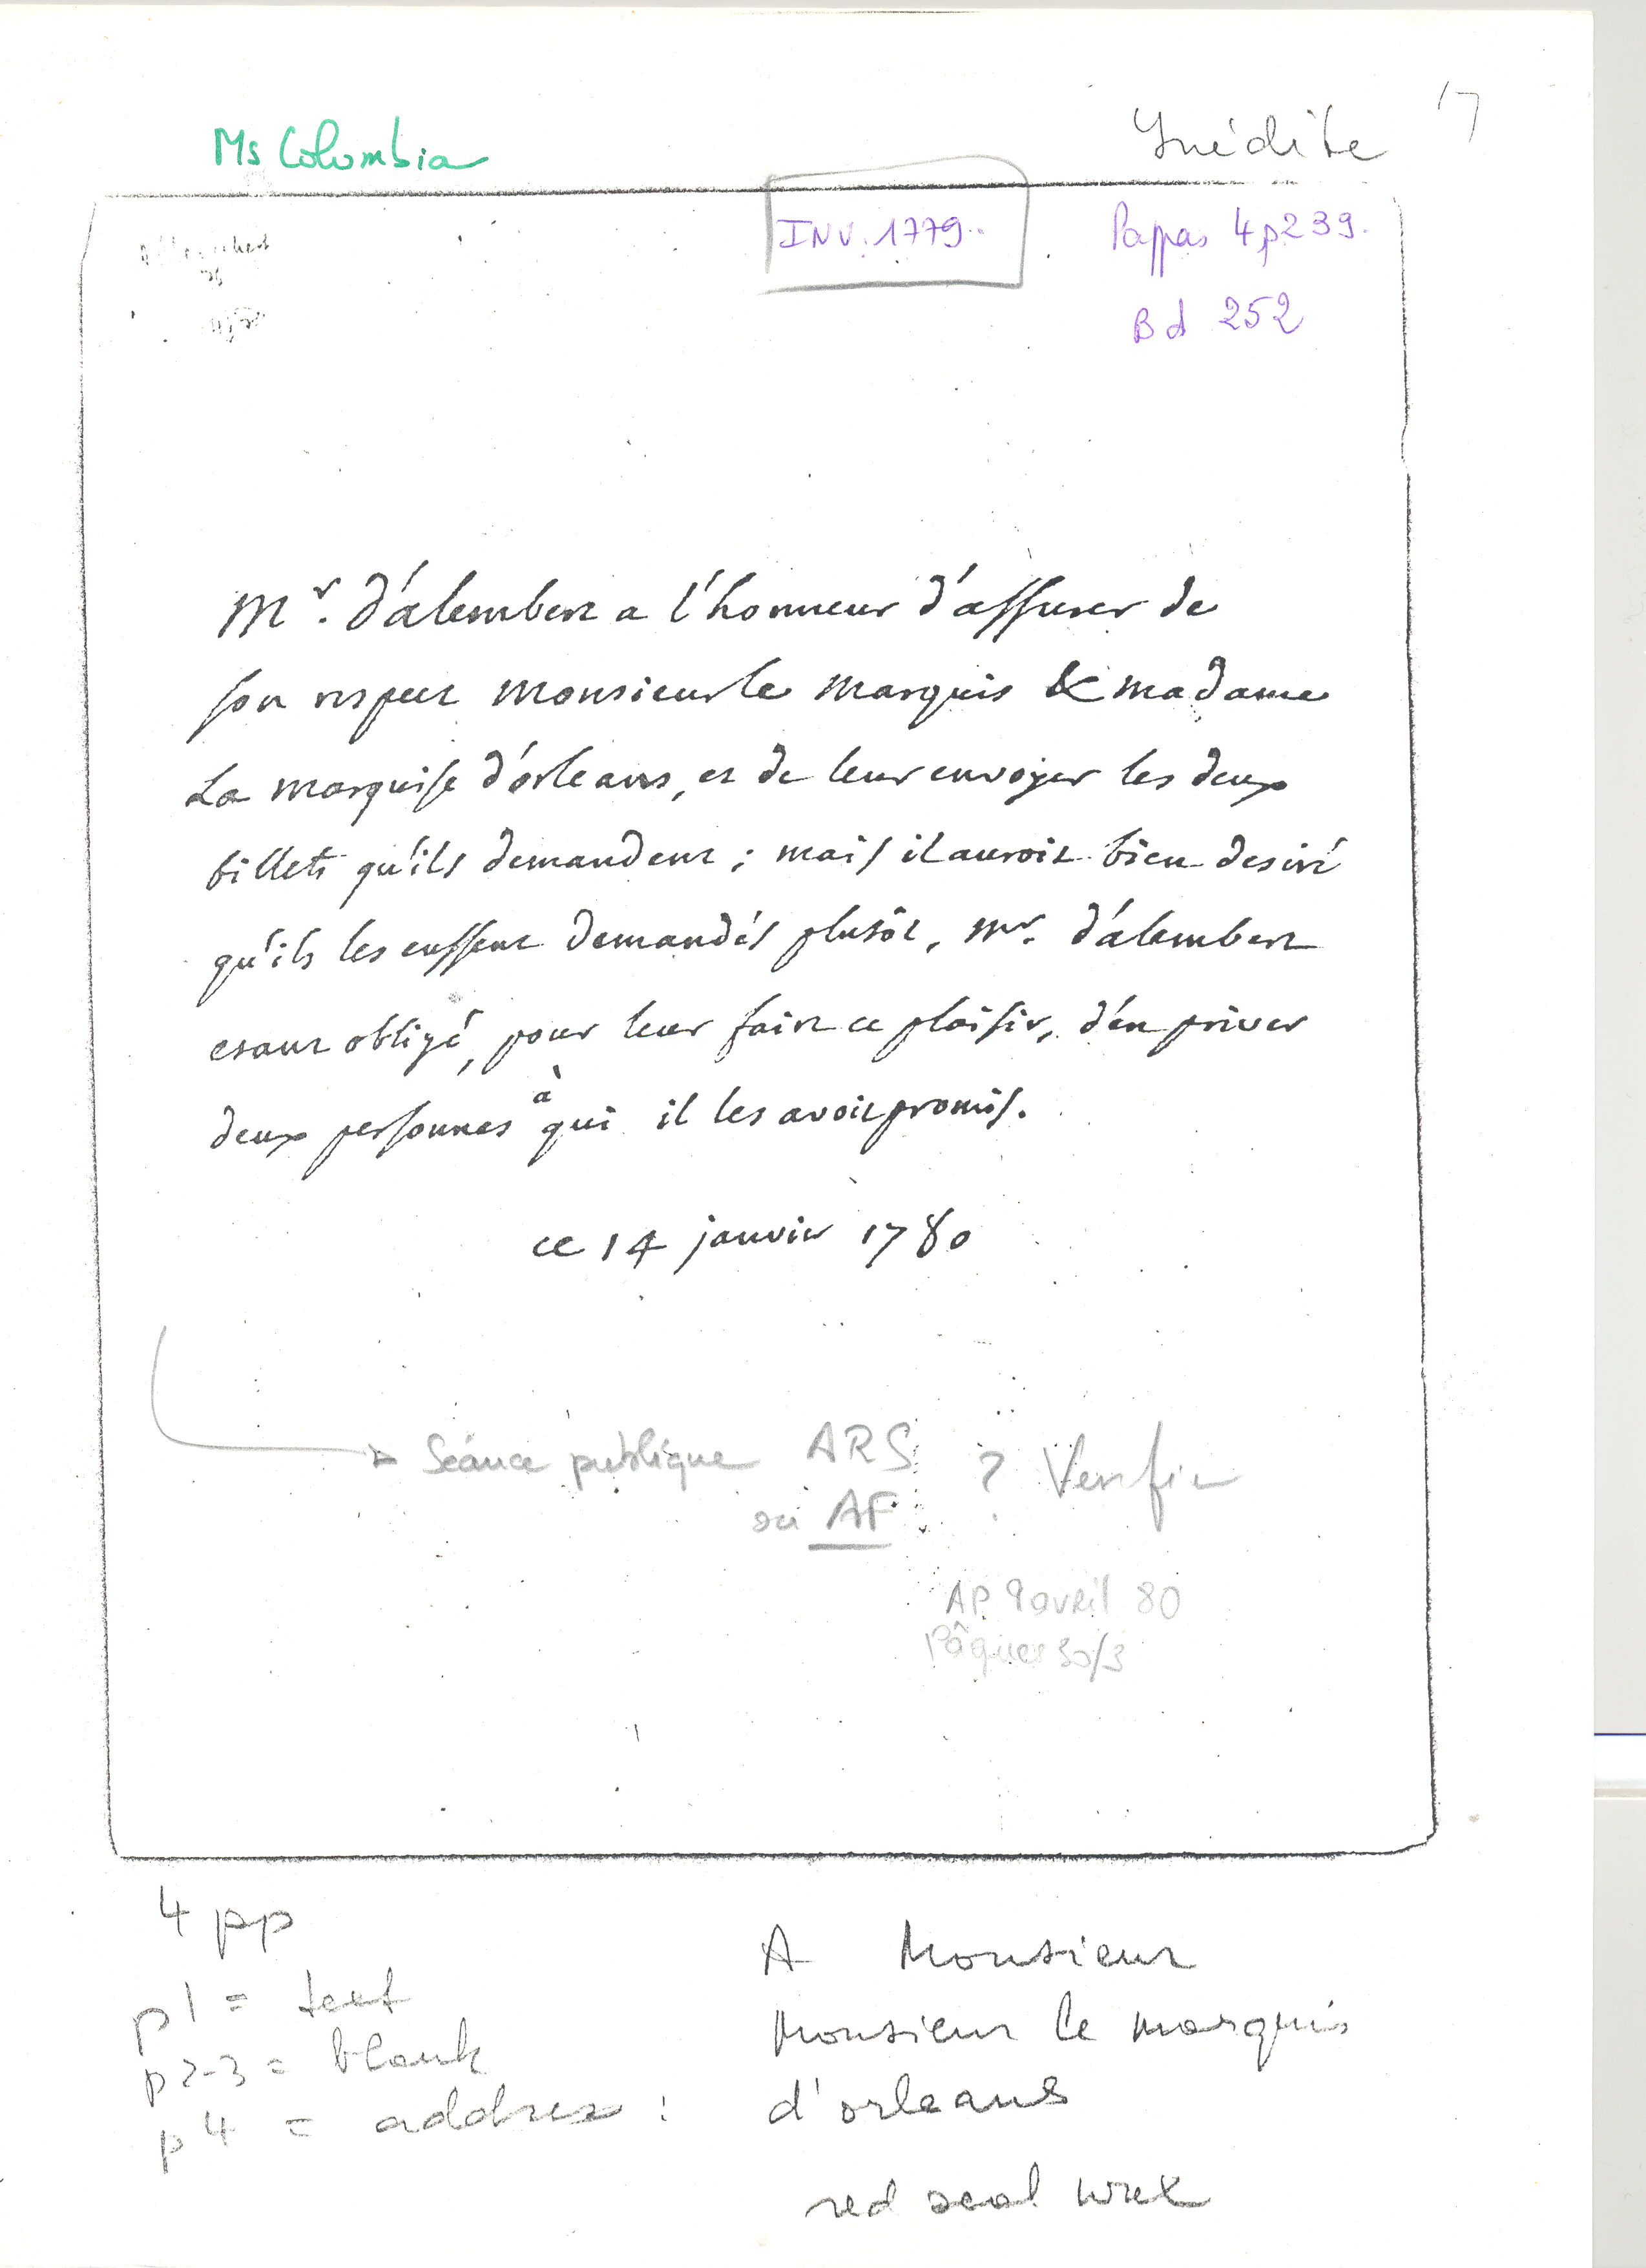 Ms Columbia
Inédite
17
INV. 1779.
Pappas 4 p 239.
Bd 252
Mr. d'alembert a l'honneur d'assurer de
son respect monsieur le marquis & madame
La marquise d'orleans, et de leur envoyer les deux
billets qu'ils demandent ; mais il auroit bien desiré
qu'ils les eussent demandés plutôt, mr. d'alembert
etant obligé, pour leur faire ce plaisir, d'en priver
deux personnes à qui il les avoit promis.
ce 14 janvier 1780
Séance publique ARS ? Verifier
ou AF
AP. 9 avril 80
Pâques 30/3
4 pp
p1 = text
p2-3 = blank
p4 = address :
A Monsieur
Monsieur le marquis
d'orleans
red seal wax